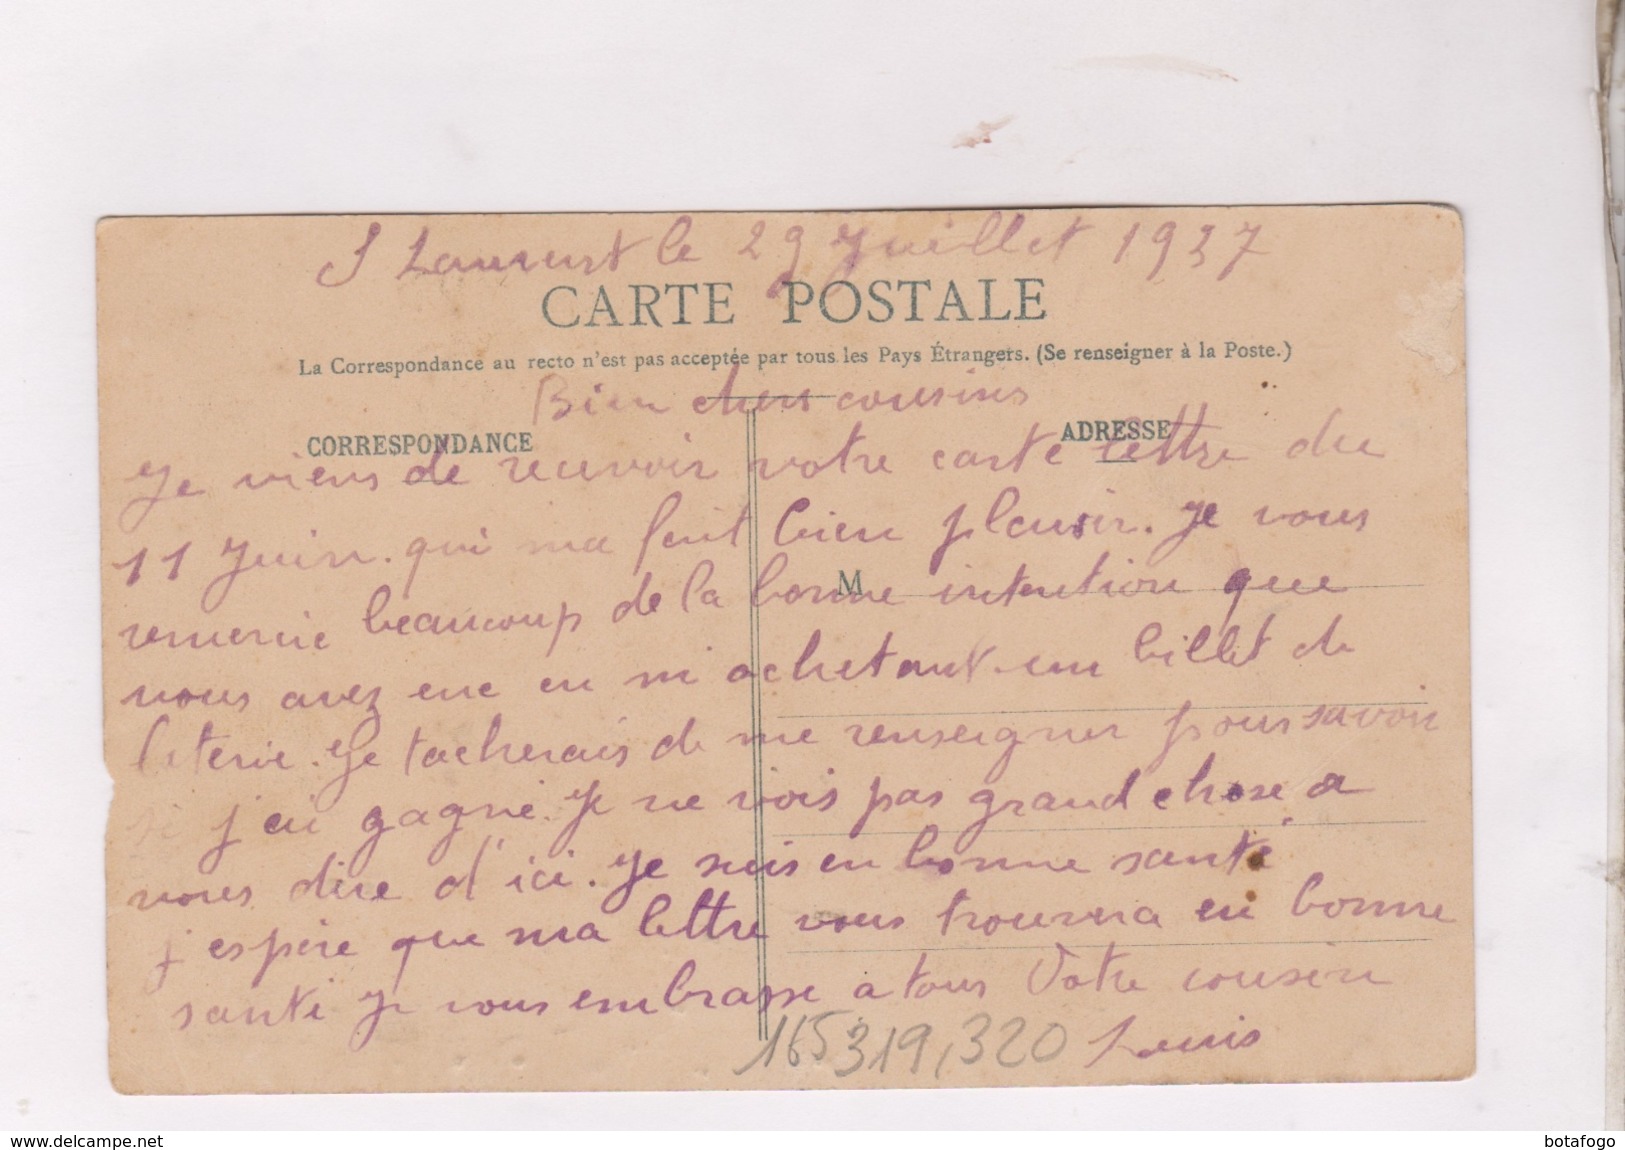 S Laurent le 29 Juillet 1937
CARTE POSTALE
La Correspondance au recto n'est pas acceptée par tous les Pays Étrangers. (Se renseigner à la Poste.)
Bien chers cousins
CORRESPONDANCE
ADRESSE
Je viens de recevoir votre carte lettre du
11 Juin. qui ma fait bien plaisir. Je vous
M
remercie beaucoup de la bonne intention que
vous avez eue en m'achetant un billet de
loterie. Je tacherais de me renseigner pour savoir
si j'ai gagné. Je ne vois pas grand chose a
vous dire d'ici. Je suis en bonne santé
j'espère que ma lettre vous trouvera en bonne
santé Je vous embrasse a tous Votre cousin
Louis
165 319, 320
www.delcampe.net
botafogo